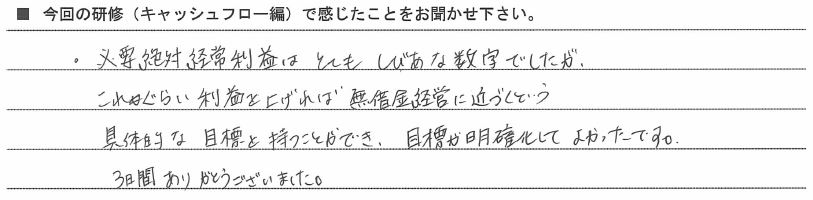 ■ 今回の研修（キャッシュフロー編）で感じたことをお聞かせ下さい。
・必要絶対経常利益は とても しびあな数字でしたが、
これぐらい 利益を上げれば 無借金経営に近づくという
具体的な 目標を 持つことができ、目標が明確化して よかったです。
3日間 ありがとうございました。